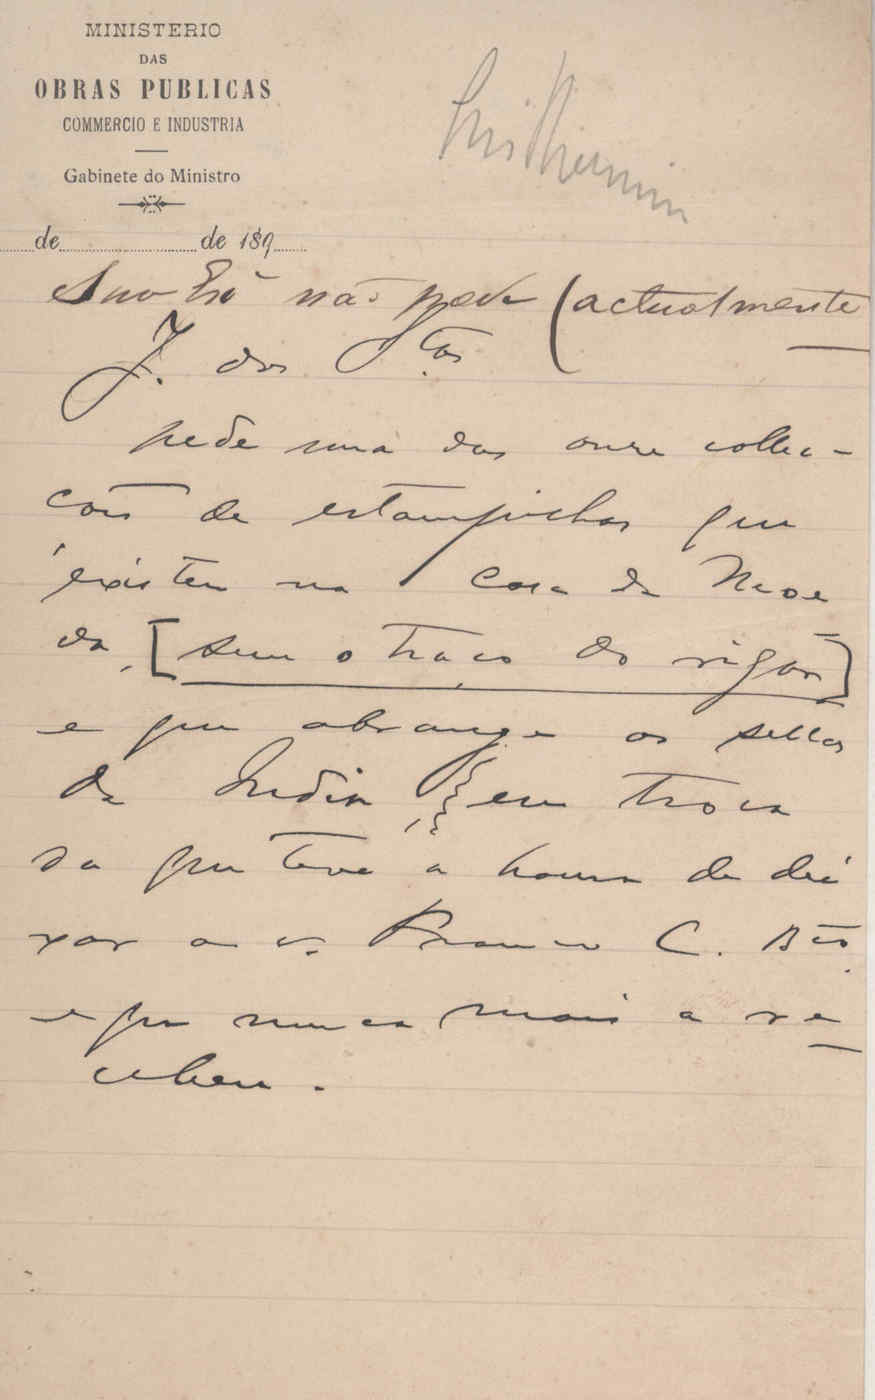 MINISTERIO
DAS
OBRAS PUBLICAS
COMMERCIO E INDUSTRIA
Gabinete do Ministro
de de 189
não pode (actualmente
J. dos Stos
pede uma das onze collec-
çoes de estampilhas que
existem na Casa da Moe
da, [sem o traço do rigor]
e que abrange os sellos
da India, em troca
da que teve a honra de dei
xar a v. C.
e que nunca mais a re
cebeu.